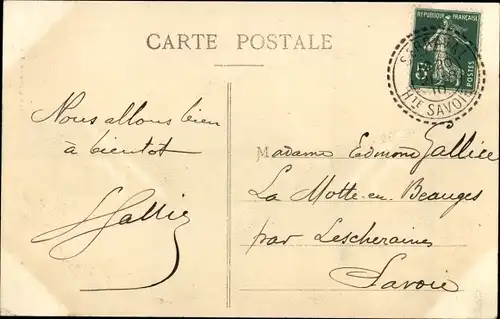 CARTE POSTALE
REPUBLIQUE FRANÇAISE
5c
POSTES
Hte SAVOIE
Nous allons bien
à bientot
Gallice
Madame Edmond Gallice
La Motte-en-Beauges
par Lescheraines
Savoie